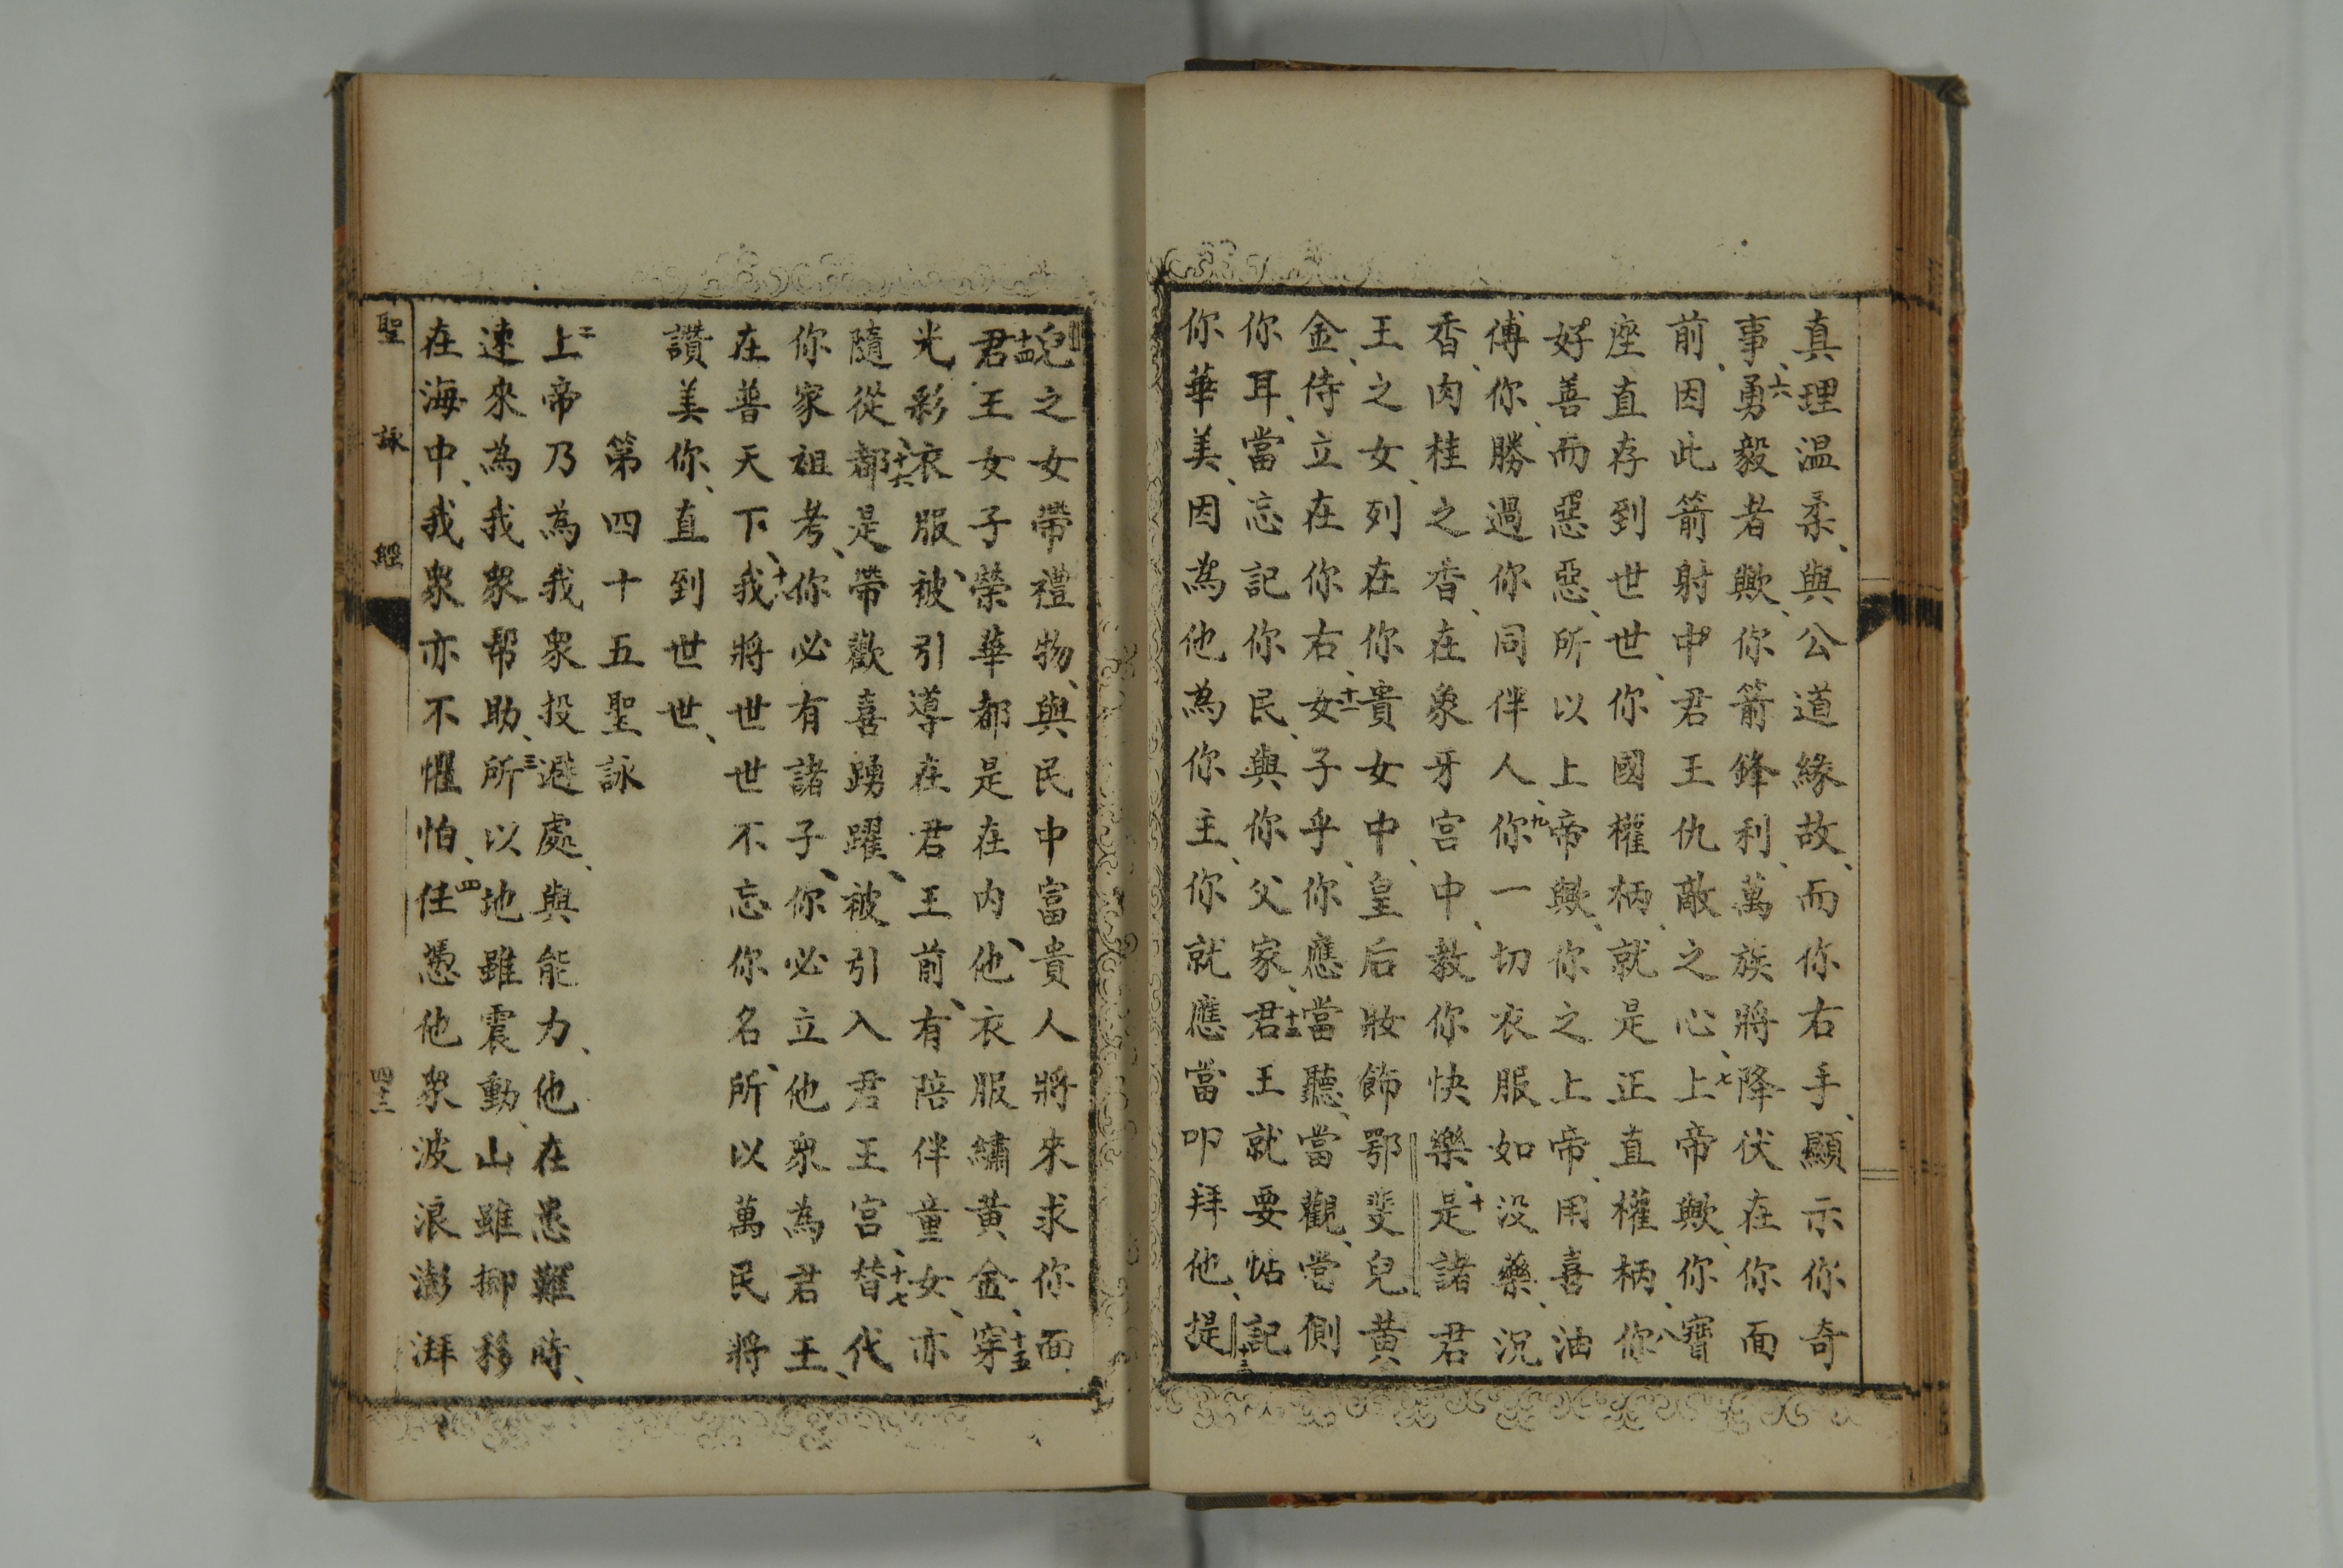 真理温柔、與公道緣故、而你右手、顯示你奇
事、六勇毅者歟、你箭鋒利、萬族將降伏在你面
前、因此箭射中君王仇敵之心、七上帝歟、你寶
座直存到世世、你國權柄、就是正直權柄、八你
好善而惡惡、所以上帝歟、你之上帝、用喜油
傅你、勝過你同伴人、九你一切衣服如没藥、況
香、肉桂之香、在象牙宮中、教你快樂、十是諸君
王之女、列在你貴女中、皇后妝飾鄂斐兒黄
金、侍立在你右、十一女子乎、你應當聽、當觀、當側
你耳、當忘記你民、與你父家、十二君王就要惦記
你華美、因為他為你主、你就應當叩拜他、十三提
兒之女帶禮物、與民中富貴人將來求你面、
十四君王女子榮華都是在内、他衣服繡黄金、十五穿
光彩衣服、被引導在君王前、有陪伴童女、亦
隨從、十六都是帶歡喜踴躍、被引入君王宮、十七替代
你家祖考、你必有諸子、你必立他衆為君王、
在普天下、十八我將世世不忘你名、所以萬民將
讚美你、直到世世、
第四十五聖詠
二上帝乃為我衆投避處、與能力、他在患難時、
速來為我衆帮助、三所以地雖震動、山雖挪移
在海中、我衆亦不懼怕、四任憑他衆波浪澎湃
聖詠經
四十三